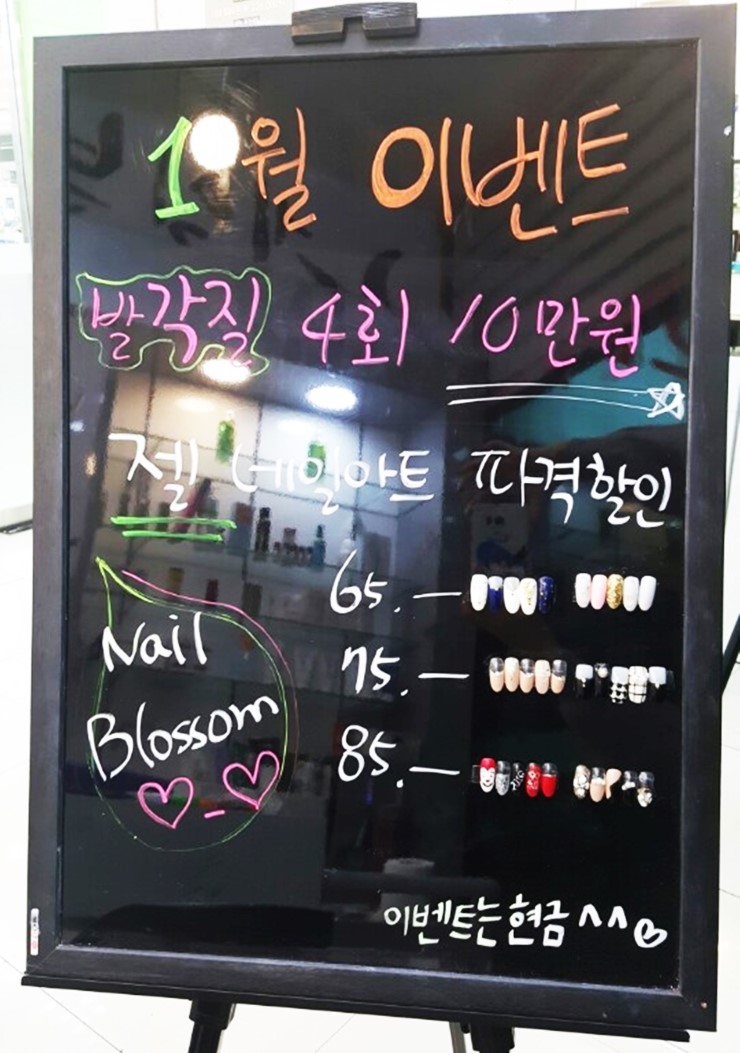 1월 이벤트
발각질 4회 10만원
젤 네일아트 파격할인
65.—
75.—
85.—
Nail
Blossom
♡-♡
이벤트는 현금 ^^♡